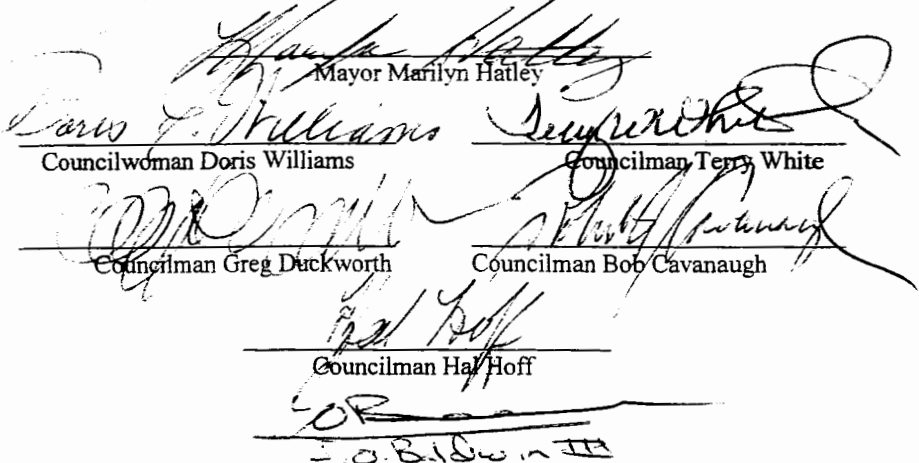 Marilyn Hatley
Mayor Marilyn Hatley
Doris L. Williams
Councilwoman Doris Williams
Terry White
Councilman Terry White
Councilman Greg Duckworth
Cavanaugh
Councilman Bob Cavanaugh
Hal Hoff
Councilman Hal Hoff
O. Baldwin III